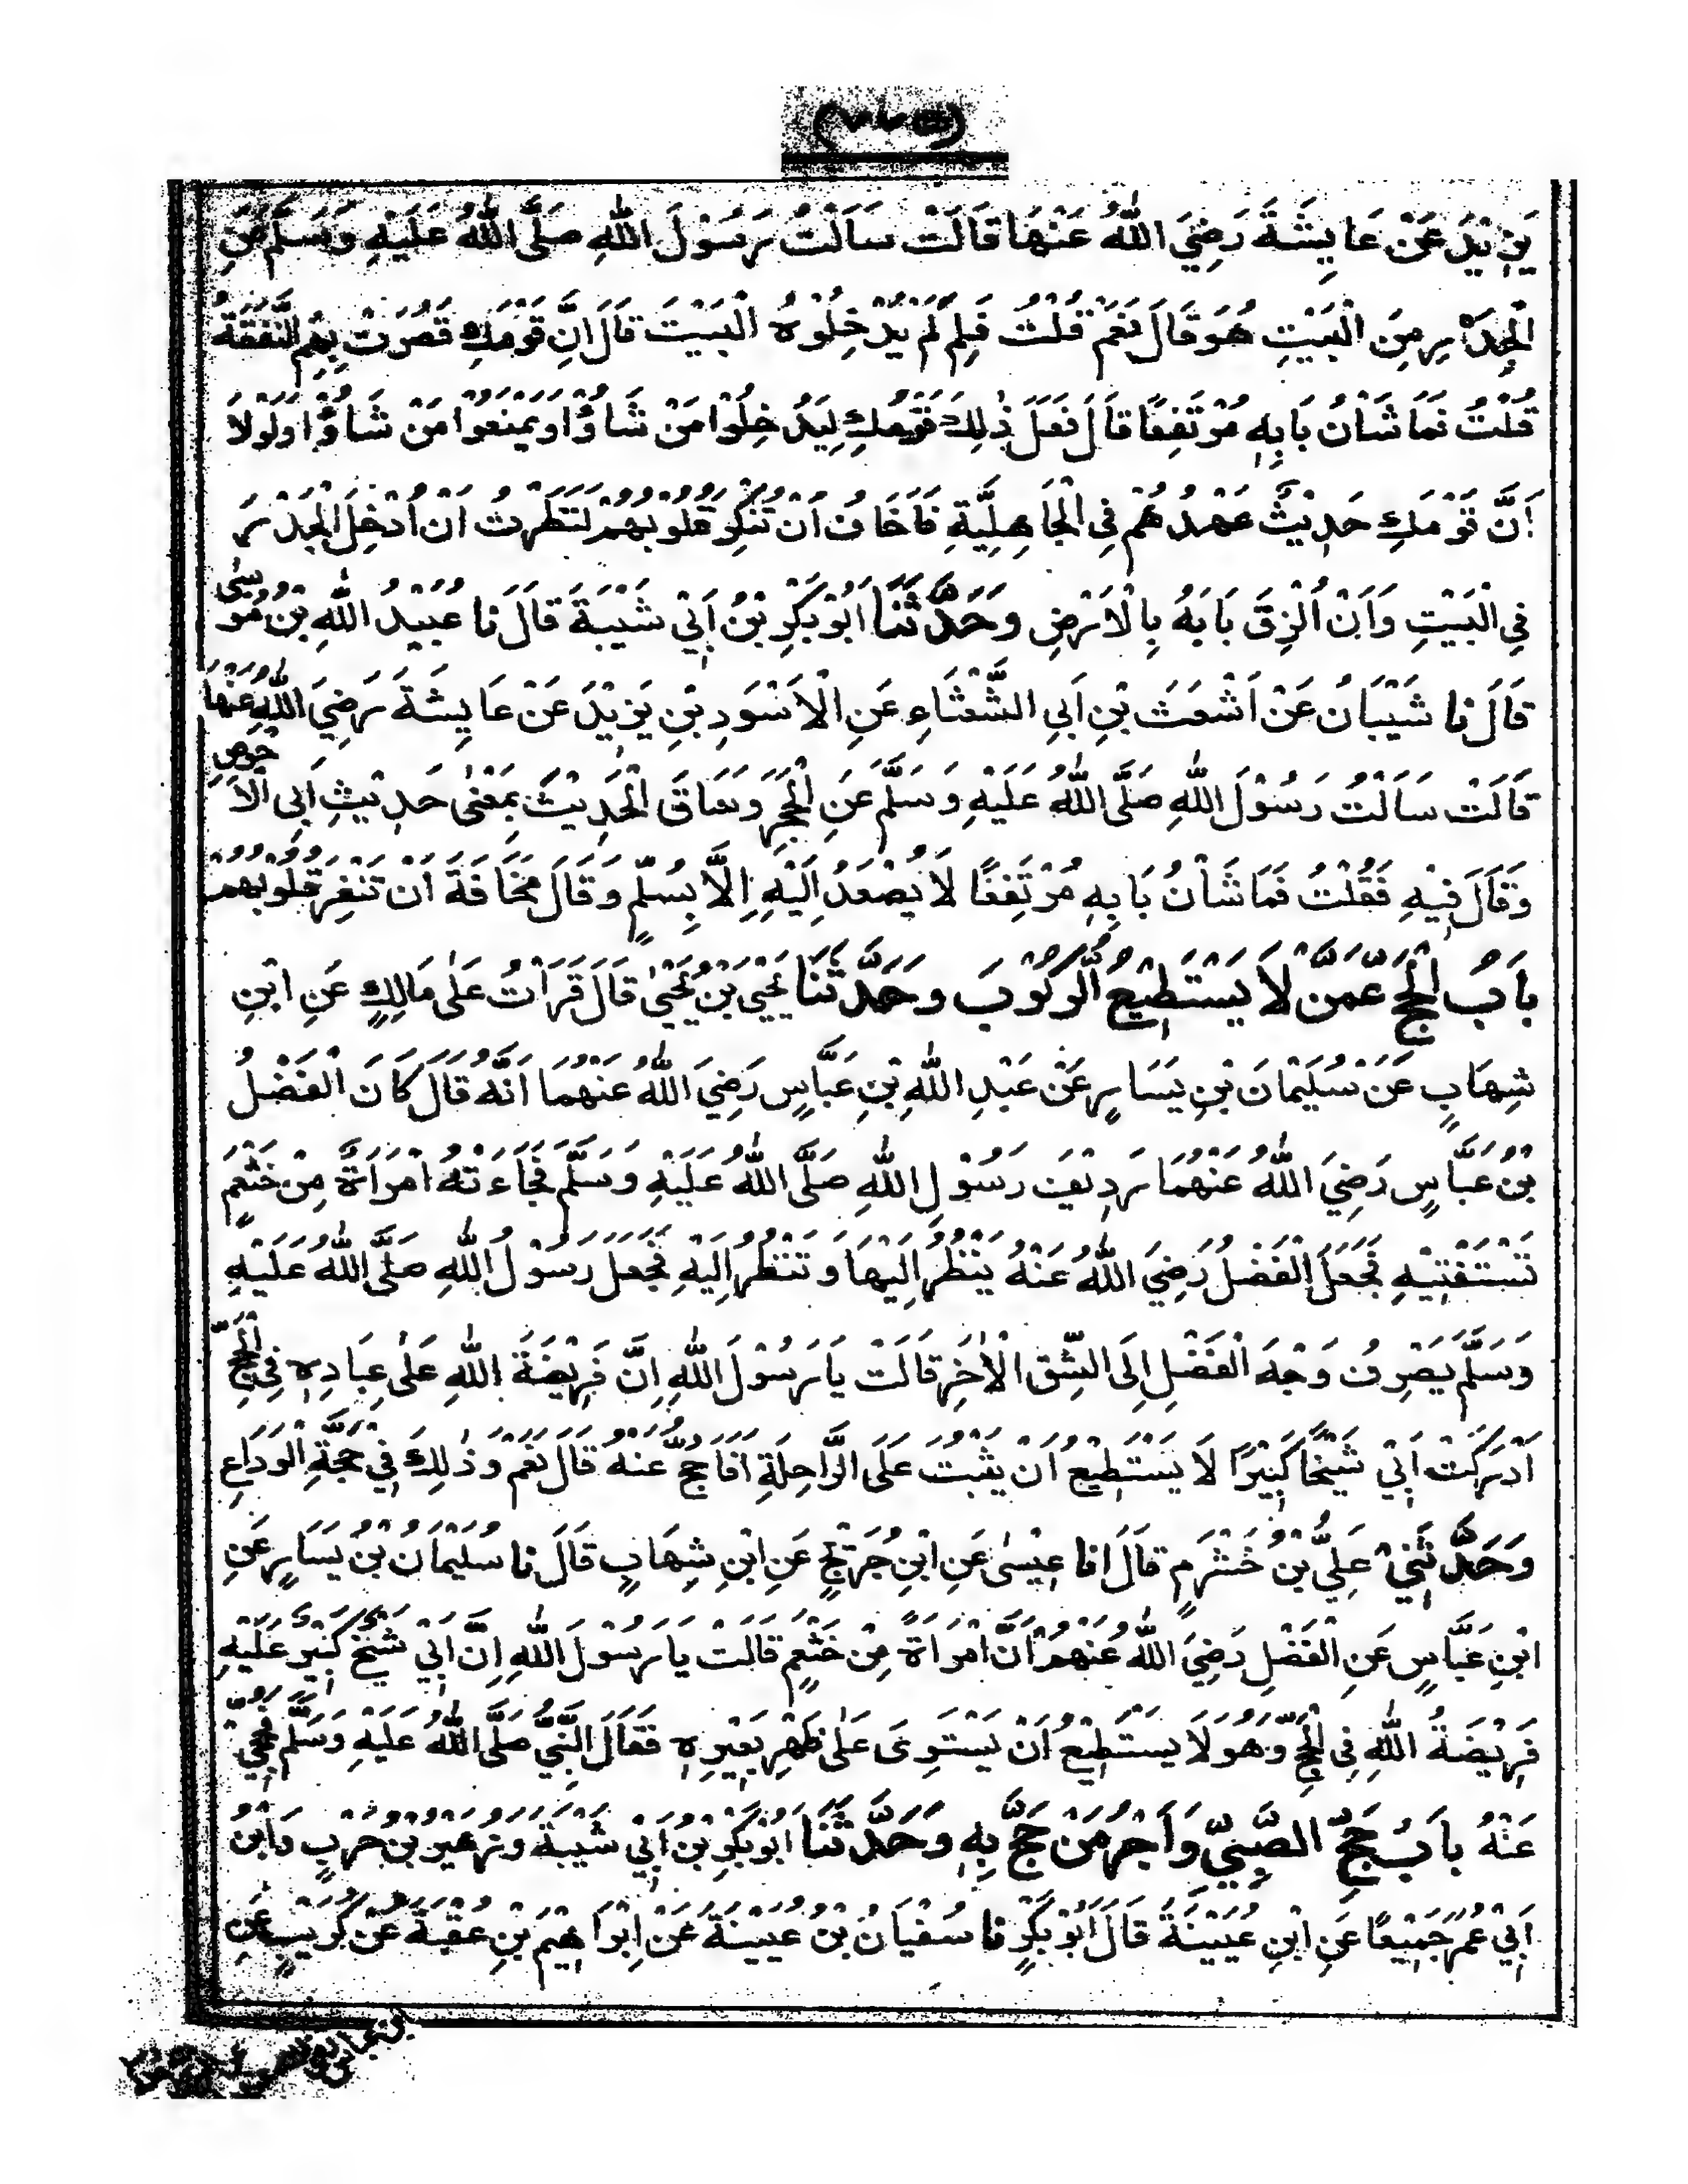 يَزِيْدَ عَنْ عَايِشَةَ رَضِيَ اللّٰهُ عَنْهَا قَالَتْ سَاَلْتُ رَسُوْلَ اللّٰهِ صَلَّى اللّٰهُ عَلَيْهِ وَسَلَّمَ عَنِ
الْجِدَارِ مِنَ الْبَيْتِ هُوَ قَالَ نَعَمْ قُلْتُ فَلِمَ لَمْ يُدْخِلُوْهُ الْبَيْتَ قَالَ اِنَّ قَوْمَكِ قَصُرَتْ بِهِمِ النَّفَقَةُ
قُلْتُ فَمَا شَاْنُ بَابِهٖ مُرْتَفِعًا قَالَ فَعَلَ ذٰلِكَ قَوْمُكِ لِيُدْخِلُوْا مَنْ شَاؤُا وَيَمْنَعُوْا مَنْ شَاؤُا وَلَوْلَا
اَنَّ قَوْمَكِ حَدِيْثٌ عَهْدُهُمْ فِي الْجَاهِلِيَّةِ فَاَخَافُ اَنْ تُنْكِرَ قُلُوْبُهُمْ لَنَظَرْتُ اَنْ اُدْخِلَ الْجَدْرَ
فِي الْبَيْتِ وَاَنْ اُلْزِقَ بَابَهُ بِالْاَرْضِ وَحَدَّثَنَا اَبُوْ بَكْرِ بْنُ اَبِيْ شَيْبَةَ قَالَ نا عُبَيْدُ اللّٰهِ بْنُ مُوْسٰى
قَالَ نا شَيْبَانُ عَنْ اَشْعَثَ بْنِ اَبِي الشَّعْثَاءِ عَنِ الْاَسْوَدِ بْنِ يَزِيْدَ عَنْ عَايِشَةَ رَضِيَ اللّٰهُ عَنْهَا
قَالَتْ سَاَلْتُ رَسُوْلَ اللّٰهِ صَلَّى اللّٰهُ عَلَيْهِ وَسَلَّمَ عَنِ الْحِجْرِ وَسَاقَ الْحَدِيْثَ بِمَعْنٰى حَدِيْثِ اَبِي الْاَحْوَصِ
وَقَالَ فِيْهِ فَقُلْتُ فَمَا شَاْنُ بَابِهٖ مُرْتَفِعًا لَا يُصْعَدُ اِلَيْهِ اِلَّا بِسُلَّمٍ وَقَالَ مَخَافَةَ اَنْ تَنْفِرَ قُلُوْبُهُمْ
بَابُ الْحَجِّ عَمَّنْ لَا يَسْتَطِيْعُ الرُّكُوْبَ وَحَدَّثَنَا يَحْيَى بْنُ يَحْيٰى قَالَ قَرَاْتُ عَلٰى مَالِكٍ عَنِ ابْنِ
شِهَابٍ عَنْ سُلَيْمَانَ بْنِ يَسَارٍ عَنْ عَبْدِ اللّٰهِ بْنِ عَبَّاسٍ رَضِيَ اللّٰهُ عَنْهُمَا اَنَّهُ قَالَ كَانَ الْفَضْلُ
بْنُ عَبَّاسٍ رَضِيَ اللّٰهُ عَنْهُمَا رَدِيْفَ رَسُوْلِ اللّٰهِ صَلَّى اللّٰهُ عَلَيْهِ وَسَلَّمَ فَجَاءَتْهُ امْرَاَةٌ مِنْ خَثْعَمَ
تَسْتَفْتِيْهِ فَجَعَلَ الْفَضْلُ رَضِيَ اللّٰهُ عَنْهُ يَنْظُرُ اِلَيْهَا وَتَنْظُرُ اِلَيْهِ فَجَعَلَ رَسُوْلُ اللّٰهِ صَلَّى اللّٰهُ عَلَيْهِ
وَسَلَّمَ يَصْرِفُ وَجْهَ الْفَضْلِ اِلَى الشِّقِّ الْاٰخَرِ قَالَتْ يَا رَسُوْلَ اللّٰهِ اِنَّ فَرِيْضَةَ اللّٰهِ عَلٰى عِبَادِهٖ فِي الْحَجِّ
اَدْرَكَتْ اَبِيْ شَيْخًا كَبِيْرًا لَا يَسْتَطِيْعُ اَنْ يَثْبُتَ عَلَى الرَّاحِلَةِ اَفَاَحُجُّ عَنْهُ قَالَ نَعَمْ وَذٰلِكَ فِيْ حَجَّةِ الْوَدَاعِ
وَحَدَّثَنِيْ عَلِيُّ بْنُ خَشْرَمٍ قَالَ انا عِيْسٰى عَنِ ابْنِ جُرَيْجٍ عَنِ ابْنِ شِهَابٍ قَالَ نا سُلَيْمَانُ بْنُ يَسَارٍ عَنِ
ابْنِ عَبَّاسٍ عَنِ الْفَضْلِ رَضِيَ اللّٰهُ عَنْهُمْ اَنَّ امْرَاَةً مِنْ خَثْعَمَ قَالَتْ يَا رَسُوْلَ اللّٰهِ اِنَّ اَبِيْ شَيْخٌ كَبِيْرٌ عَلَيْهِ
فَرِيْضَةُ اللّٰهِ فِي الْحَجِّ وَهُوَ لَا يَسْتَطِيْعُ اَنْ يَسْتَوِىَ عَلٰى ظَهْرِ بَعِيْرِهٖ فَقَالَ النَّبِيُّ صَلَّى اللّٰهُ عَلَيْهِ وَسَلَّمَ فَحُجِّيْ
عَنْهُ بَابُ حَجِّ الصَّبِيِّ وَاَجْرِ مَنْ حَجَّ بِهٖ وَحَدَّثَنَا اَبُوْ بَكْرِ بْنُ اَبِيْ شَيْبَةَ وَزُهَيْرُ بْنُ حَرْبٍ وَابْنُ
اَبِيْ عُمَرَ جَمِيْعًا عَنِ ابْنِ عُيَيْنَةَ قَالَ اَبُوْ بَكْرٍ نا سُفْيَانُ بْنُ عُيَيْنَةَ عَنْ اِبْرَاهِيْمَ بْنِ عُقْبَةَ عَنْ كُرَيْبٍ عَنِ